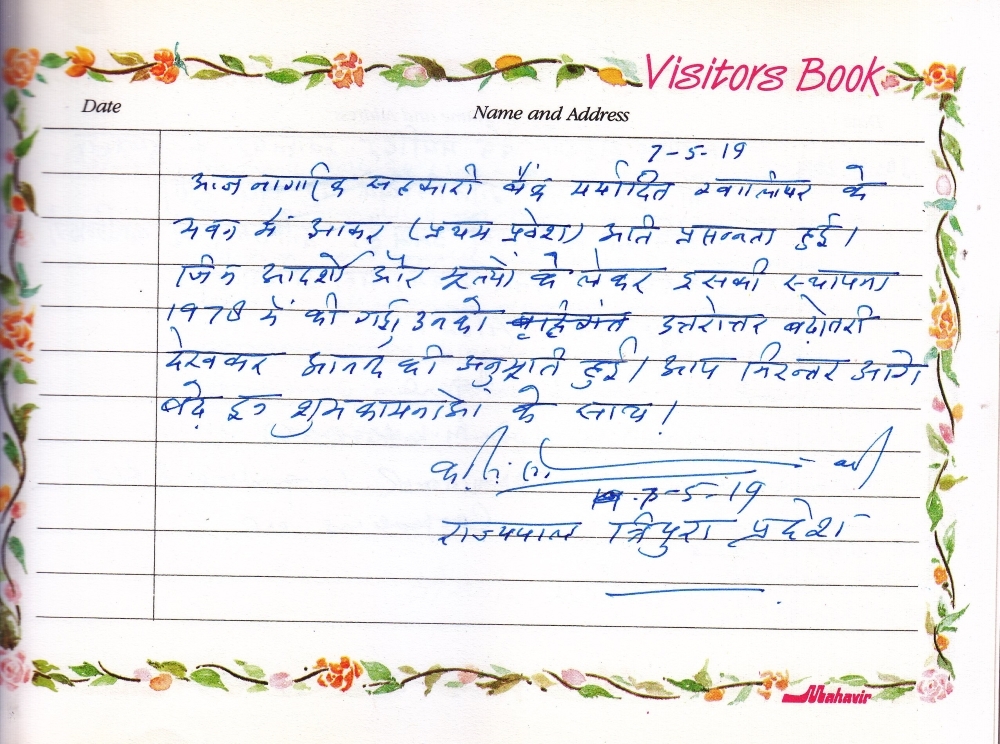 Visitors Book
Date Name and Address
7-5-19
आज नागरिक सहकारी बैंक मर्यादित ग्वालियर के
भवन में आकर (प्रथम प्रवेश) अति प्रसन्नता हुई।
जिन आदर्शों और मूल्यों को लेकर इसकी स्थापना
1978 में की गई, उनकी उत्तरोत्तर बढ़ोतरी
देखकर आनन्द की अनुभूति हुई। आप निरन्तर आगे
बढ़े इन शुभकामनाओं के साथ।
7-5-19
राज्यपाल त्रिपुरा प्रदेश
Mahavir